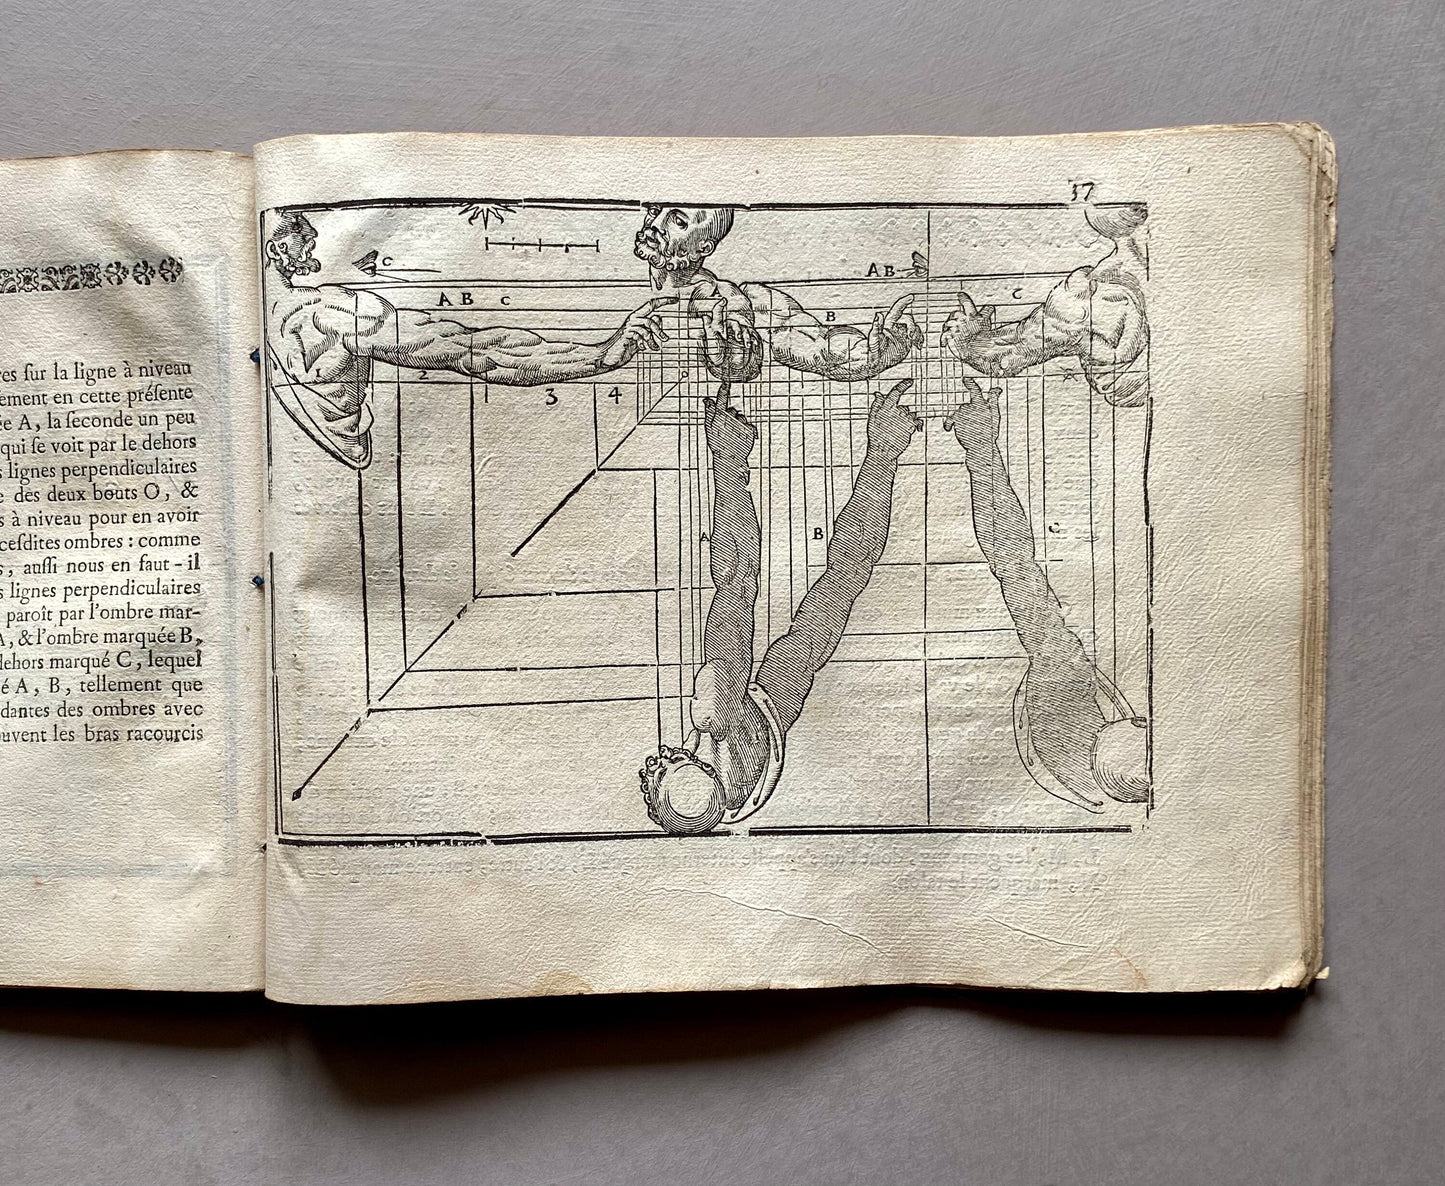 res ſur la ligne à niveau
ement en cette préſente
e A, la ſeconde un peu
qui ſe voit par le dehors
s lignes perpendiculaires
e des deux bouts O, &
s à niveau pour en avoir
ceſdites ombres : comme
s, auſſi nous en faut-il
s lignes perpendiculaires
paroît par l'ombre mar-
A, & l'ombre marquée B,
dehors marqué C, lequel
é A, B, tellement que
dantes des ombres avec
uvent les bras racourcis
37
C
A B
A B C
A
B
C
1
2
3
4
o
A
B
C